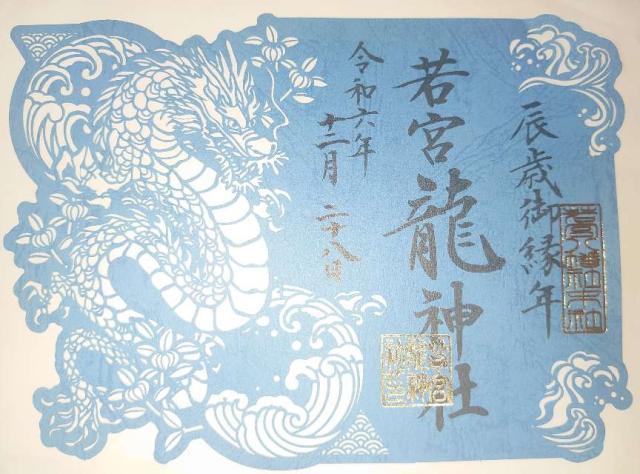 辰歳御縁年
若宮龍神社
令和六年
十二月二十八日